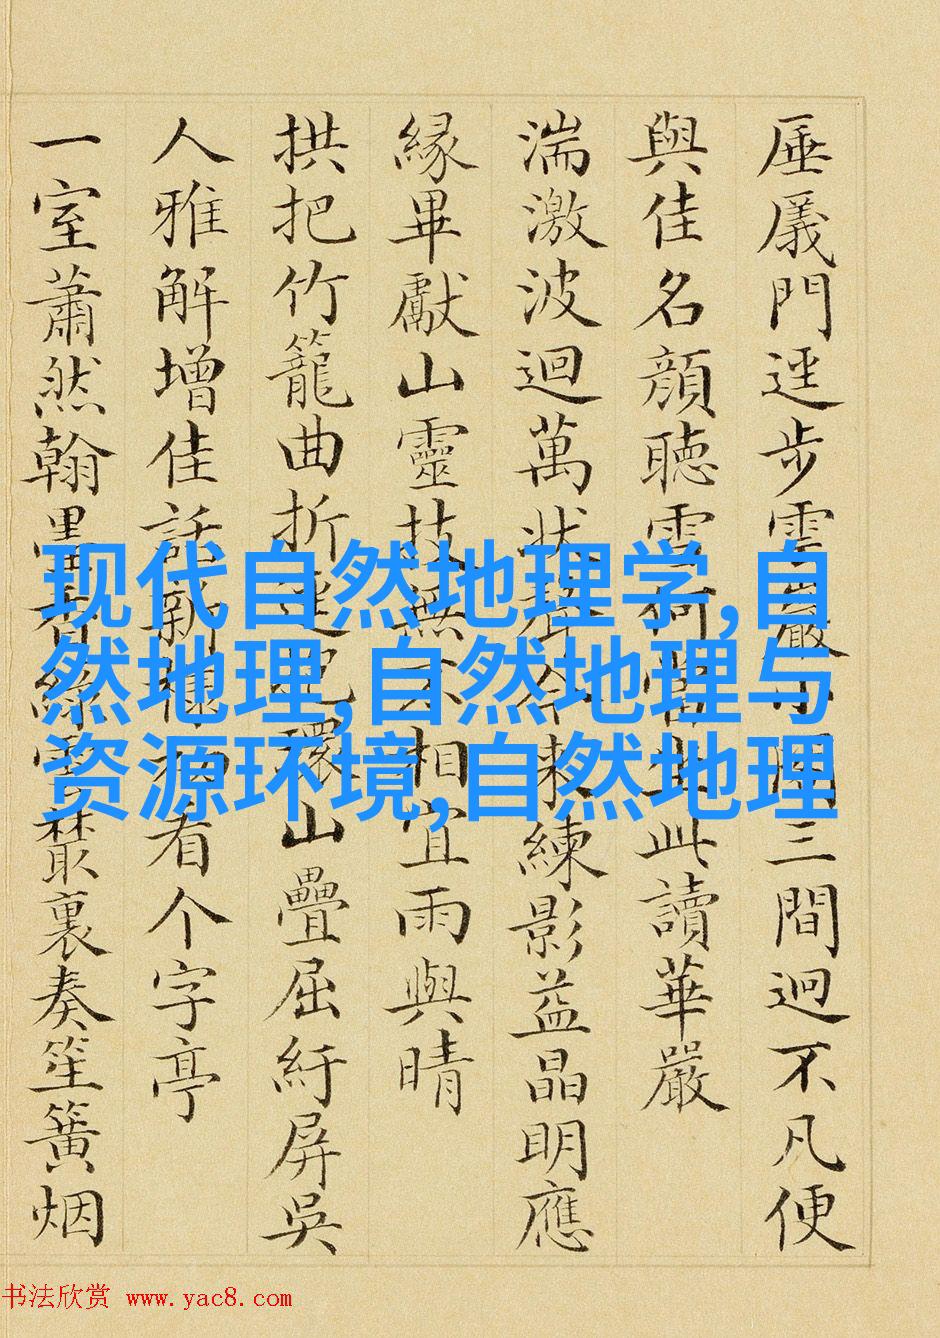 厜㕒門逕步雲巖小閣三間迥不凡便
與佳名顏聽雪何當此讀華嚴
湍激波迴萬狀練影益晶明應
緣畢獻山靈技無不相宜雨與晴
拱把竹籠曲折環山疊屈紆屏吳
人雅解增佳話新種有个字亭
一室蕭然翰墨香綠雲叢裏奏笙簧烟
现代自然地理学,自
然地理,自然地理与
资源环境,自然地理
书法欣赏 www.yac8.com